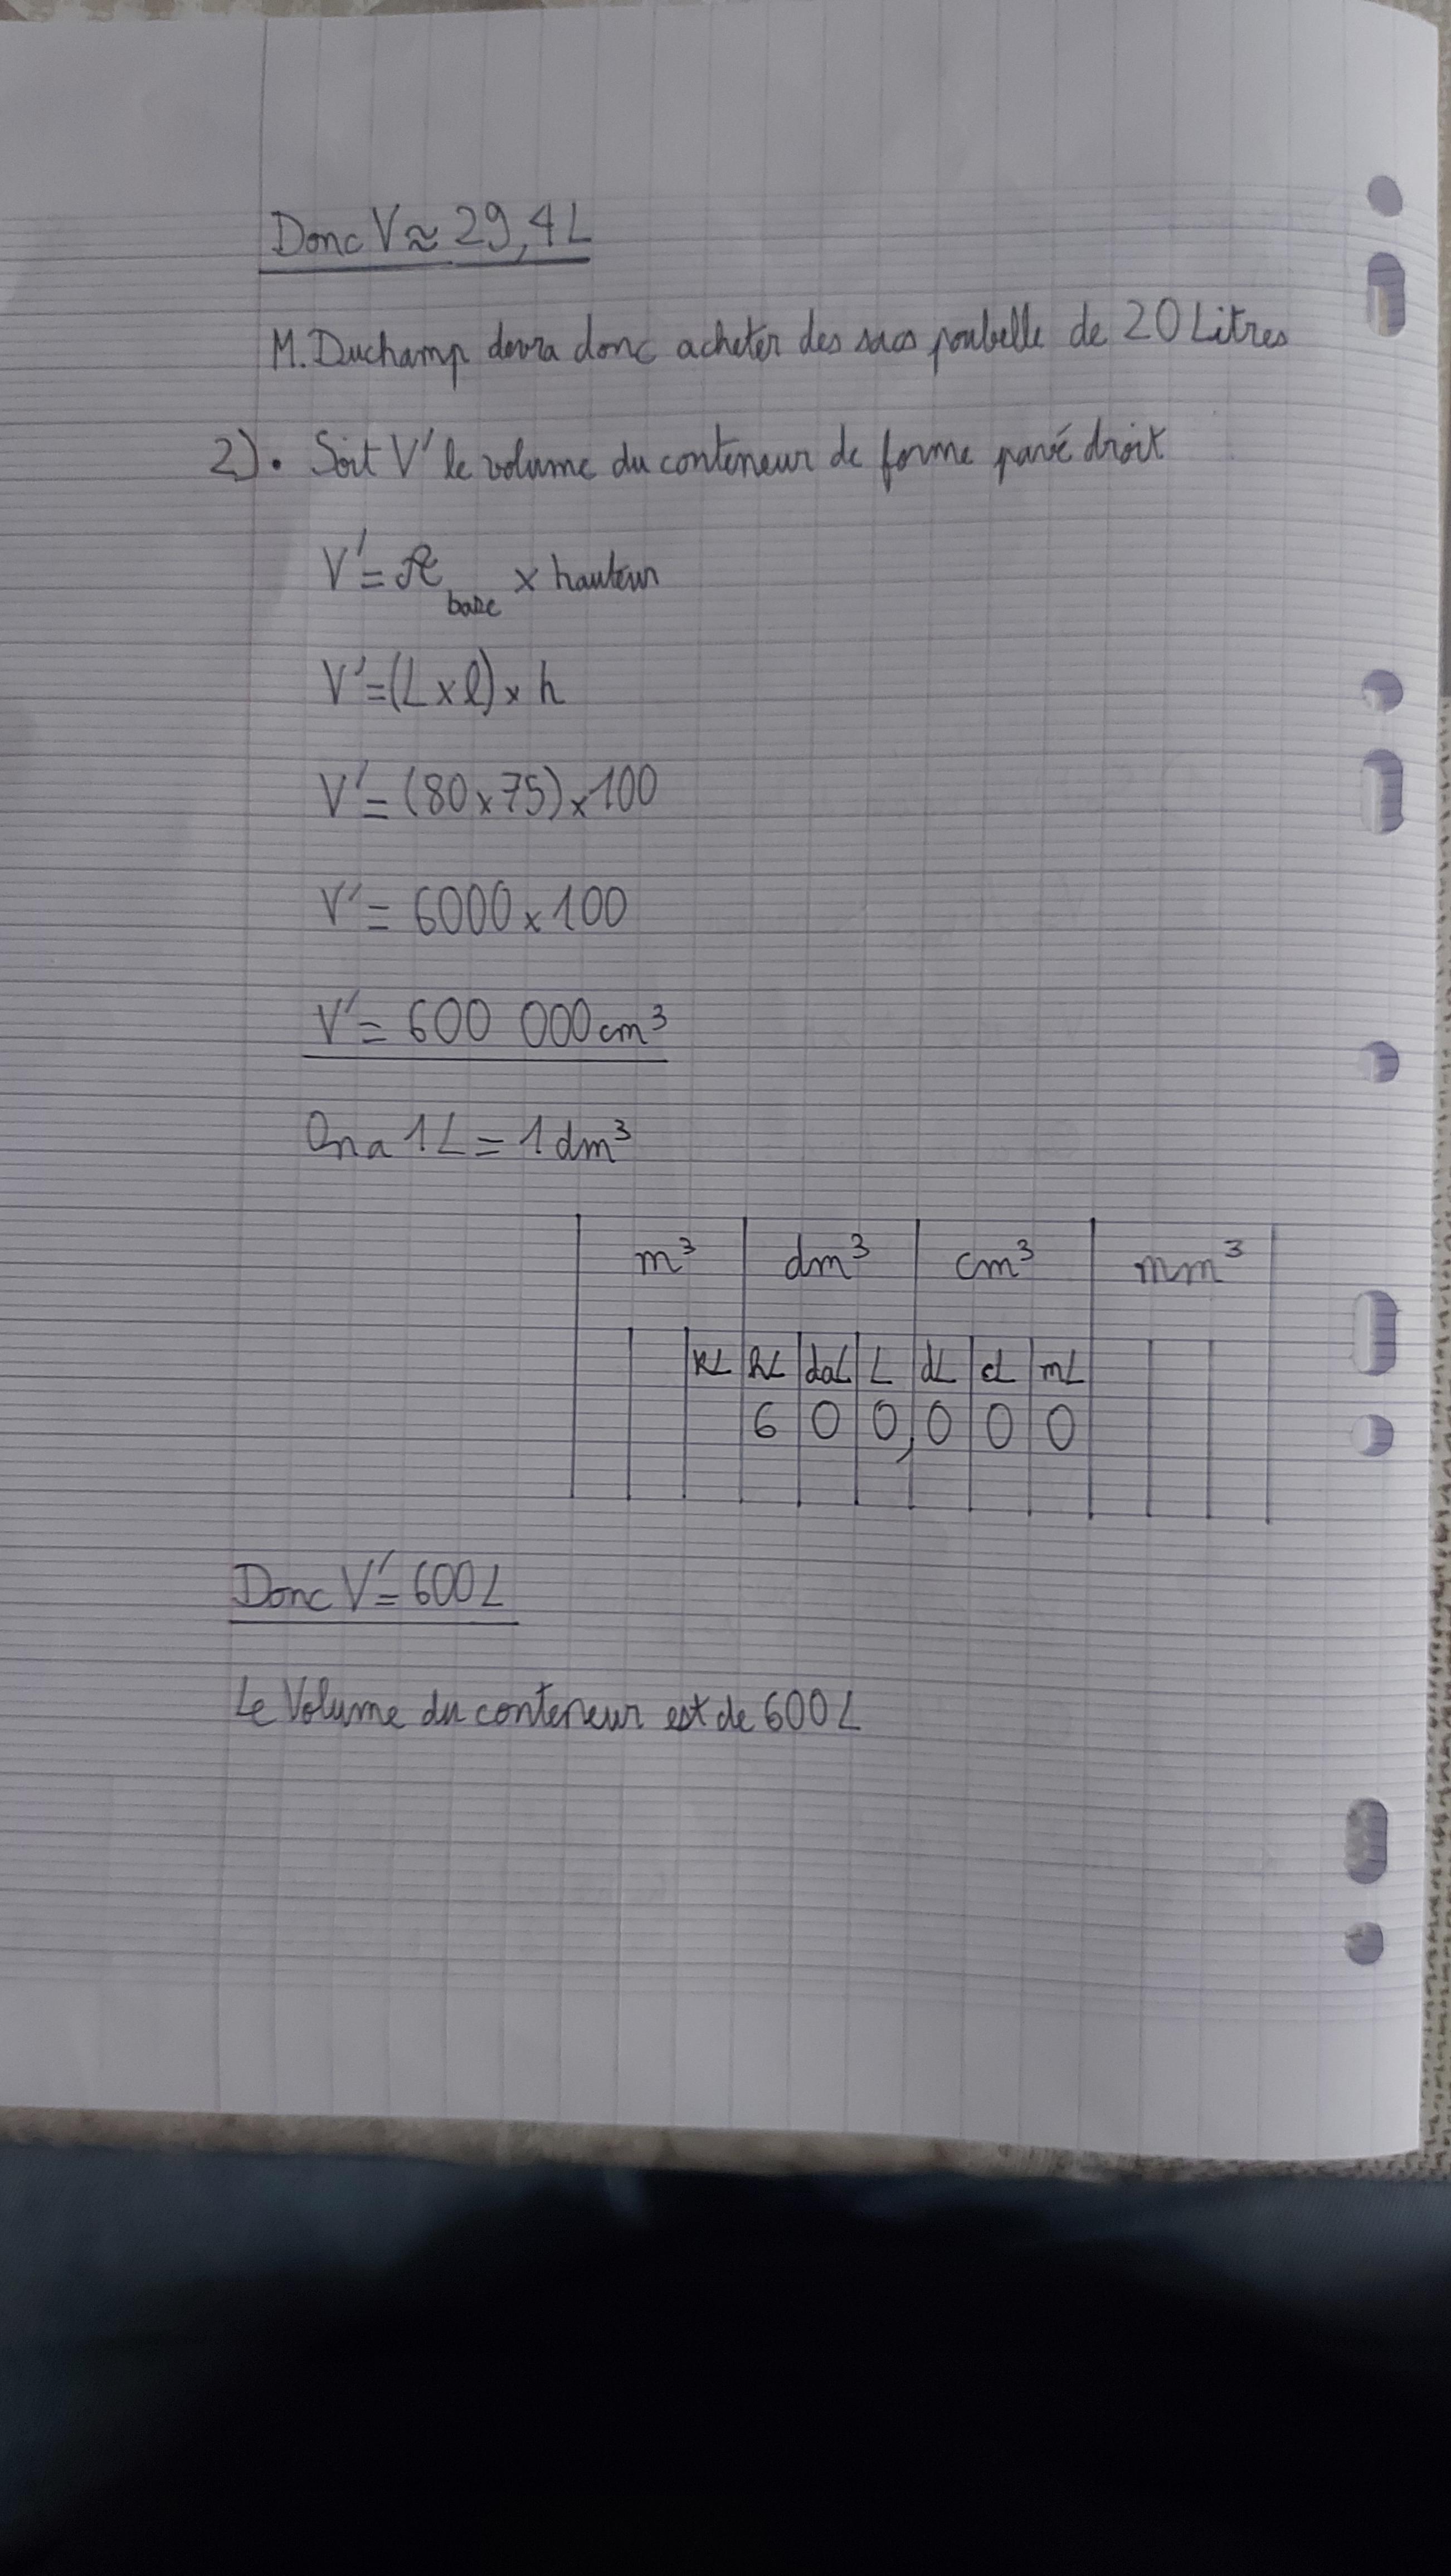 Donc V ≈ 29,4 L
M. Duchamp devra donc acheter des sacs poubelle de 20 Litres
2). Soit V' le volume du conteneur de forme pavé droit
V' = A base × hauteur
V' = (L × l) × h
V' = (80 × 75) × 100
V' = 6000 × 100
V' = 600 000 cm³
On a 1 L = 1 dm³
m³ dm³ cm³ mm³
kL hL daL L dL cL mL
6 0 0, 0 0 0
Donc V' = 600 L
Le Volume du conteneur est de 600 L